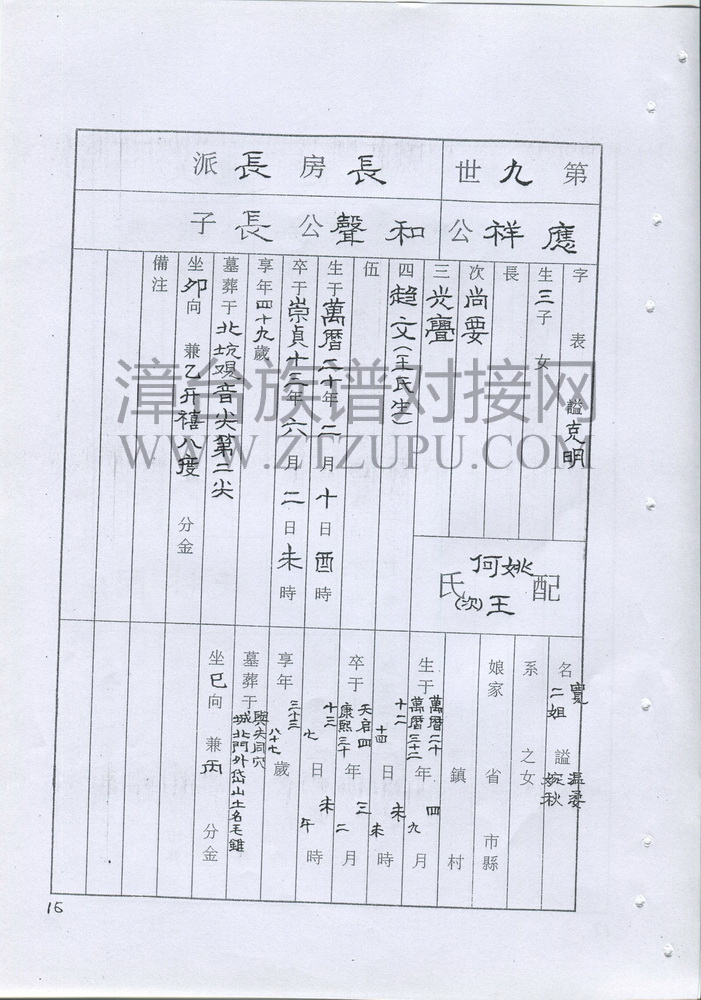 第九世
長房長派
應祥公
和聲公長子
字表 謚克明
生三子女
長
次尚要
三光亹
四趙文(王氏生)
伍
生于萬曆二十年二月十日酉時
卒于崇貞十三年六月二日未時
享年四十九歲
墓葬于北坑观音尖第二尖
坐卯向兼乙 分金
備注
配姚何王(次)氏
名寬二姐 謚温柔婉秋
系之女
娘家省市縣
鎮村
生于萬曆二十年四月十二日未時
萬曆三十二年九月十四日未時
卒于天啓四年三月十三日未時
康熙三十年二月七日午時
享年三十三 八十七歲
墓葬于與夫同穴
城北門外岱山土名毛錐
坐巳向兼丙 分金
漳台族谱对接网
WWW.ZTZUPU.COM
16